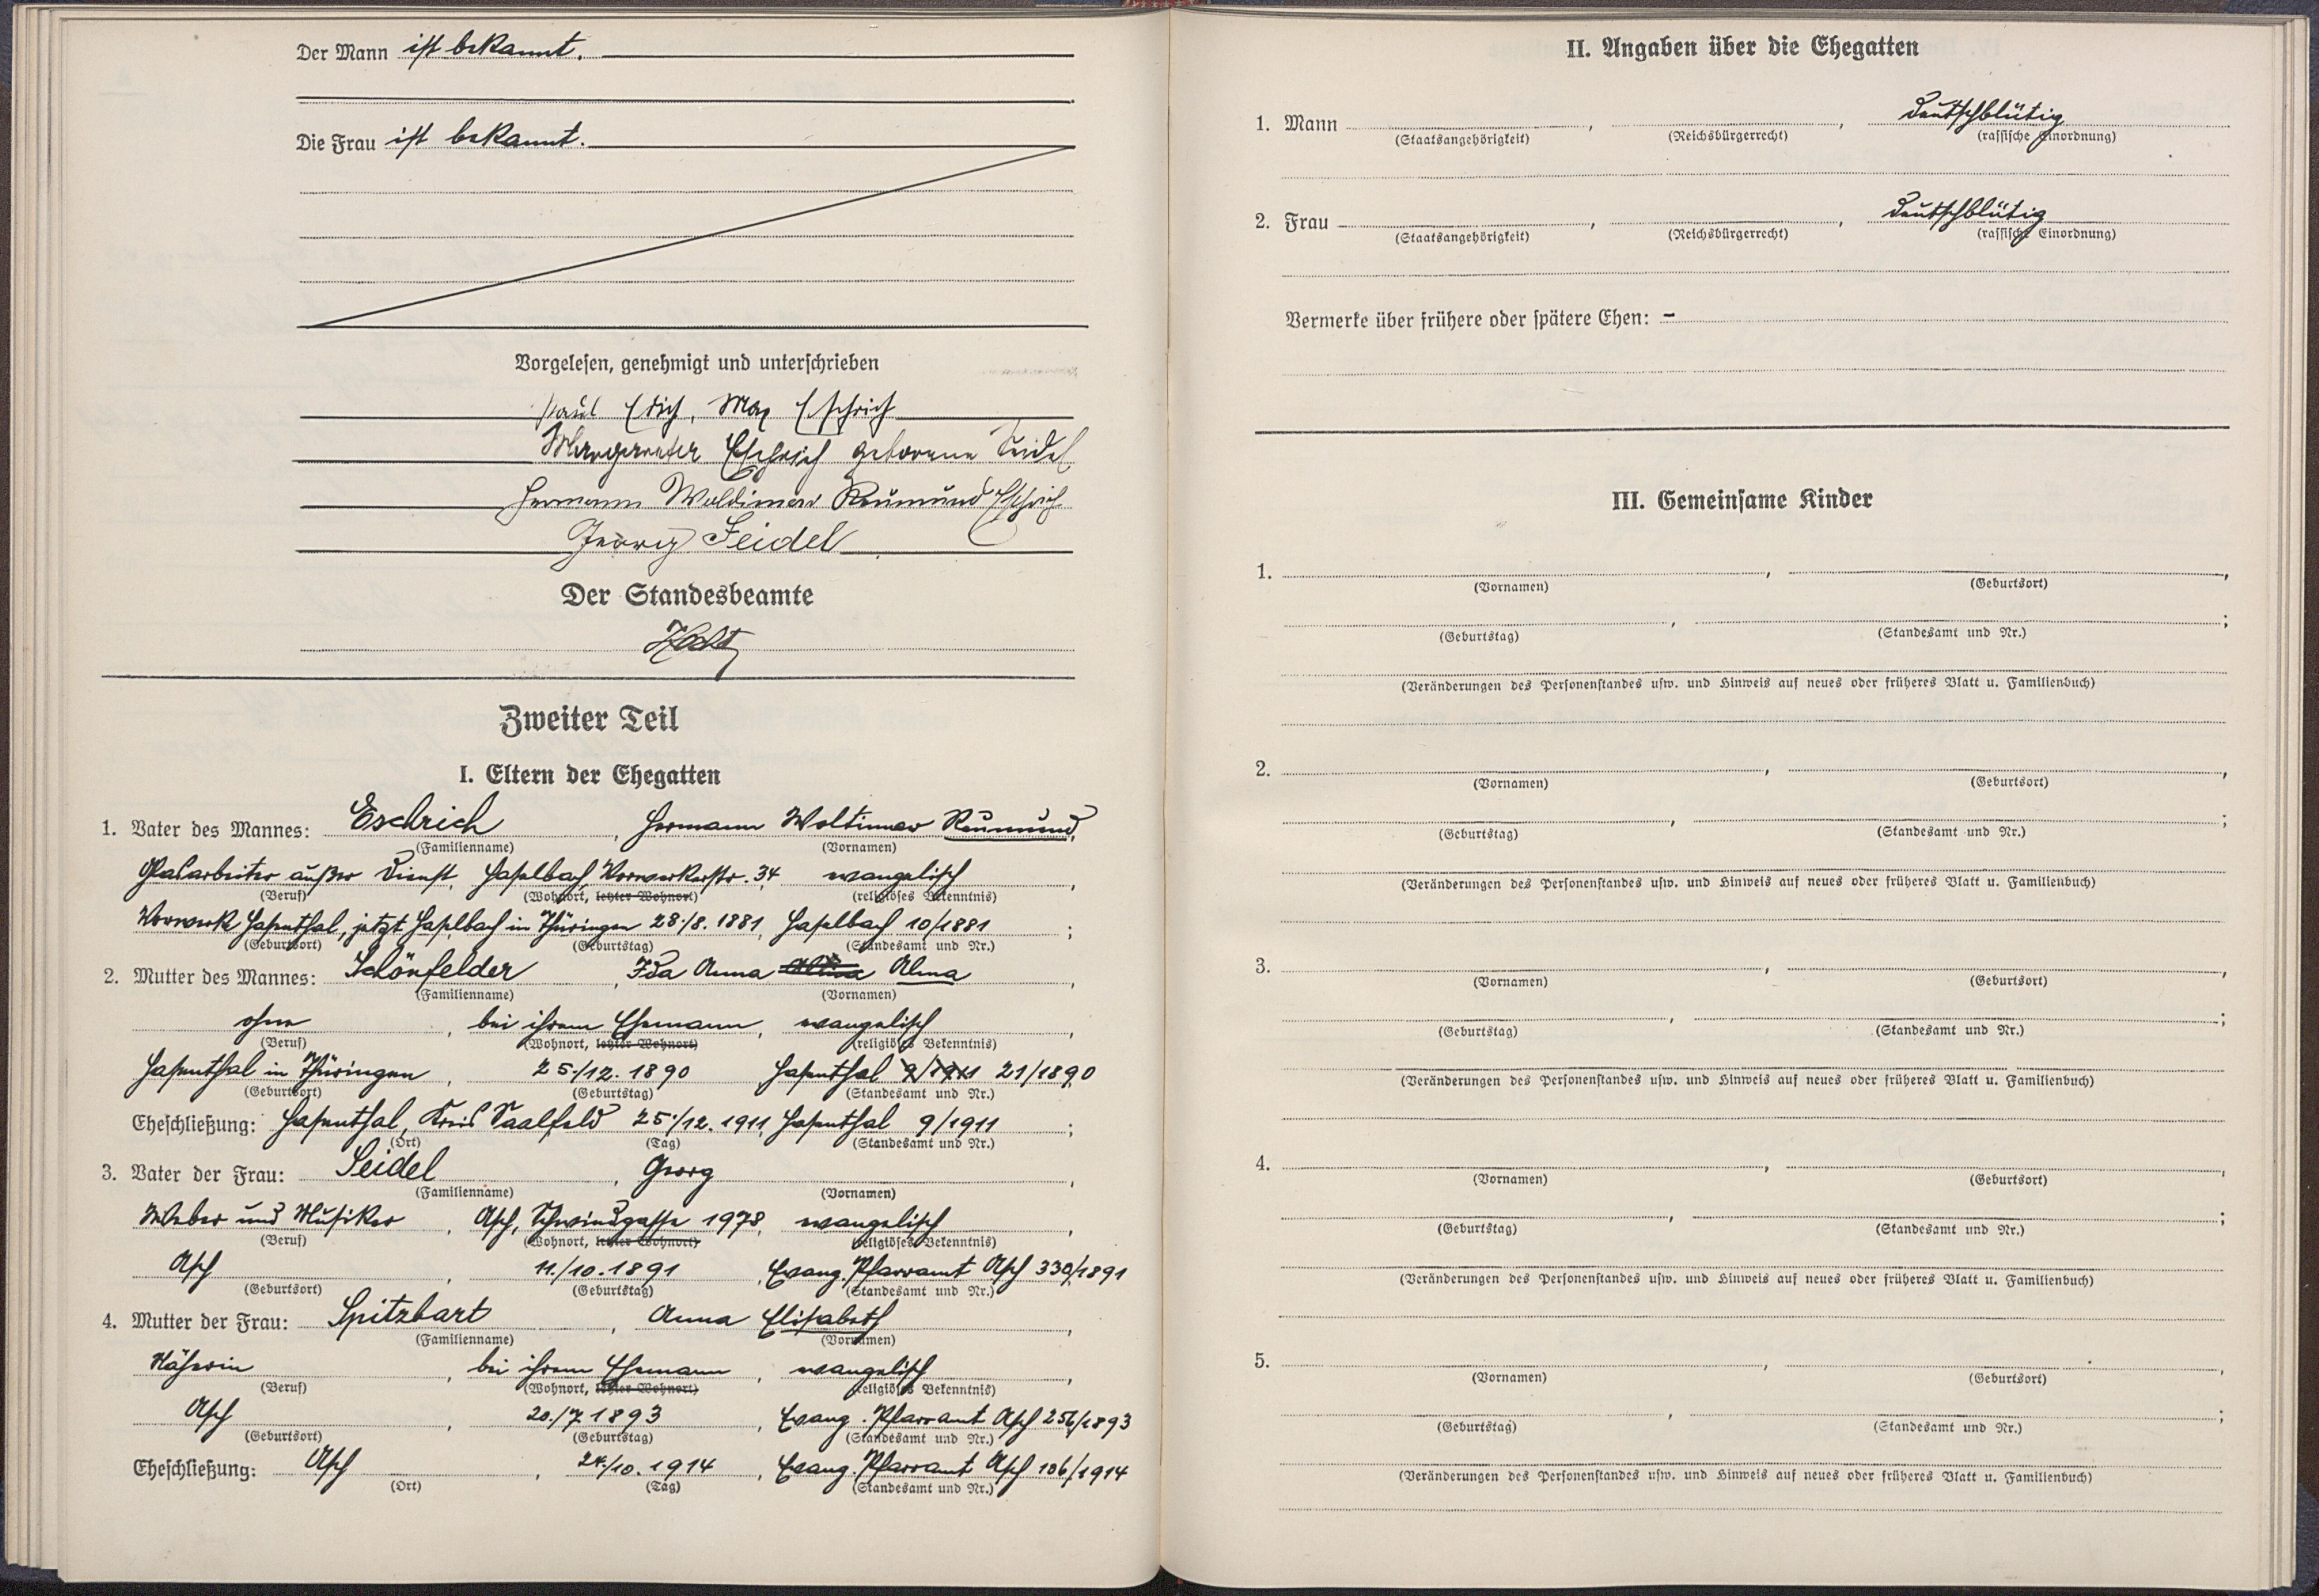 Der Mann ist bekannt.
Die Frau ist bekannt.
Vorgelesen, genehmigt und unterschrieben
Paul Erich, Max Eschrich
Margarete Eschrich geborene Seidel
Hermann Woldimar Reumund Eschrich
Seidel
Der Standesbeamte
Zweiter Teil
I. Eltern der Ehegatten
1. Vater des Mannes: Eschrich, Hermann Woltimar Reumund,
(Familienname) (Vornamen)
Glasarbeiter außer Dienst, Haselbach, Vorwerkerstr. 34 evangelisch,
(Beruf) (Wohnort, letzter Wohnort) (religiöses Bekenntnis)
Vorwerk Hasenthal, jetzt Haselbach in Thüringen 28./8. 1881, Haselbach 10/1881;
(Geburtsort) (Geburtstag) (Standesamt und Nr.)
2. Mutter des Mannes: Schönfelder, Ida Anna Alma,
(Familienname) (Vornamen)
ohne, bei ihrem Ehemann, evangelisch,
(Beruf) (Wohnort, letzter Wohnort) (religiöses Bekenntnis)
Hasenthal in Thüringen, 25./12. 1890 Hasenthal 9/1911 21/1890
(Geburtsort) (Geburtstag) (Standesamt und Nr.)
Eheschließung: Hasenthal, Kreis Saalfeld 25./12. 1911, Hasenthal 9/1911;
(Ort) (Tag) (Standesamt und Nr.)
3. Vater der Frau: Seidel, Georg,
(Familienname) (Vornamen)
Weber und Musiker, Asch, Schwindgasse 1978, evangelisch,
(Beruf) (Wohnort, letzter Wohnort) (religiöses Bekenntnis)
Asch, 11./10. 1891, Evang. Pfarramt Asch 330/1891
(Geburtsort) (Geburtstag) (Standesamt und Nr.)
4. Mutter der Frau: Spitzbart, Anna Elisabeth,
(Familienname) (Vornamen)
Näherin, bei ihrem Ehemann, evangelisch,
(Beruf) (Wohnort, letzter Wohnort) (religiöses Bekenntnis)
Asch, 20./7. 1893, Evang. Pfarramt Asch 256/1893
(Geburtsort) (Geburtstag) (Standesamt und Nr.)
Eheschließung: Asch, 24./10. 1914, Evang. Pfarramt Asch 106/1914
(Ort) (Tag) (Standesamt und Nr.)
II. Angaben über die Ehegatten
1. Mann , , deutschblütig
(Staatsangehörigkeit) (Reichsbürgerrecht) (rassische Einordnung)
2. Frau , , deutschblütig
(Staatsangehörigkeit) (Reichsbürgerrecht) (rassische Einordnung)
Vermerke über frühere oder spätere Ehen: -
III. Gemeinsame Kinder
1. , ,
(Vornamen) (Geburtsort)
, ;
(Geburtstag) (Standesamt und Nr.)
(Veränderungen des Personenstandes usw. und Hinweis auf neues oder früheres Blatt u. Familienbuch)
2. , ,
(Vornamen) (Geburtsort)
, ;
(Geburtstag) (Standesamt und Nr.)
(Veränderungen des Personenstandes usw. und Hinweis auf neues oder früheres Blatt u. Familienbuch)
3. , ,
(Vornamen) (Geburtsort)
, ;
(Geburtstag) (Standesamt und Nr.)
(Veränderungen des Personenstandes usw. und Hinweis auf neues oder früheres Blatt u. Familienbuch)
4. , ,
(Vornamen) (Geburtsort)
, ;
(Geburtstag) (Standesamt und Nr.)
(Veränderungen des Personenstandes usw. und Hinweis auf neues oder früheres Blatt u. Familienbuch)
5. , ,
(Vornamen) (Geburtsort)
, ;
(Geburtstag) (Standesamt und Nr.)
(Veränderungen des Personenstandes usw. und Hinweis auf neues oder früheres Blatt u. Familienbuch)